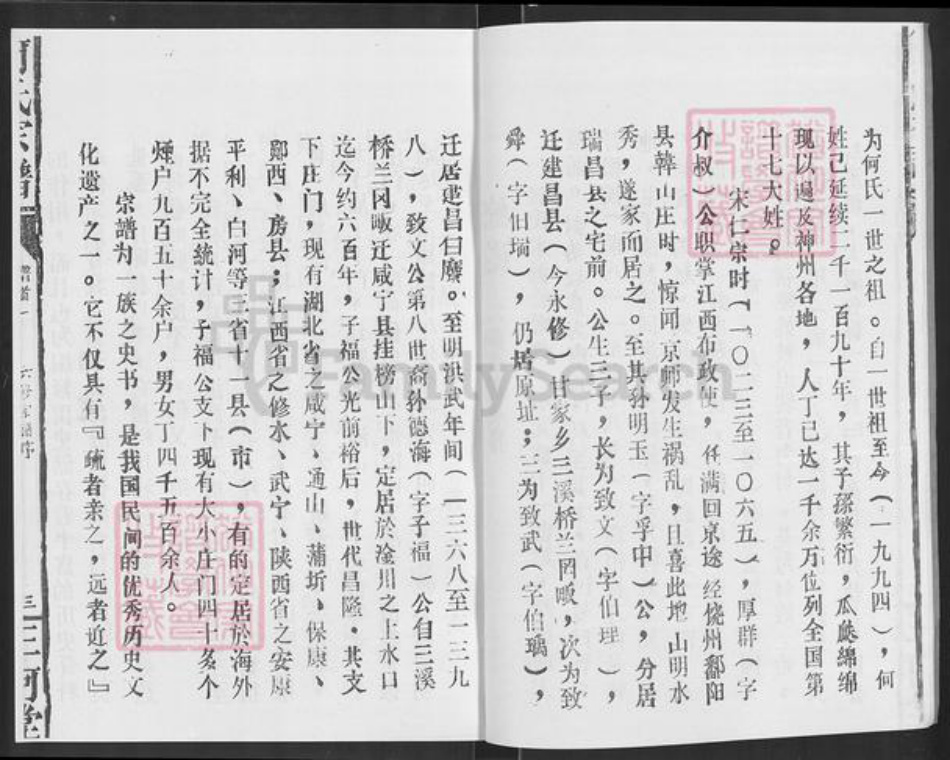 为何氏一世之祖。自一世祖至今（一九九四），何
姓已延续二千一百九十年，其子孫繁衍，瓜瓞綿綿
现以遍及神州各地，人丁已达一千余万位列全国第
十七大姓。
宋仁宗时（一〇二三至一〇六五），厚群（字
介叔）公职掌江西布政使，任满回京途经饶州鄱阳
县韓山庄时，惊闻京师发生祸乱，且喜此地山明水
秀，遂家而居之。至其孙明玉（字孚中）公，分居
瑞昌县之宅前。公生三子，长为致文（字伯理），
迁建昌县（今永修）甘家乡三溪桥兰冈畈，次为致
舜（字伯瑞），仍居原址；三为致武（字伯瑀），
迁居建昌白廪。至明洪武年间（一三六八至一三九
八），致文公第八世裔孙德海（字子福）公自三溪
桥兰冈畈迁咸宁县挂榜山下，定居於淦川之上水口
迄今约六百年，子福公光前裕后，世代昌隆．其支
下庄门，现有湖北省之咸宁、通山、蒲圻、保康、
郧西、房县；江西省之修水、武宁、陕西省之安康
平利、白河等三省十一县（市），有的定居於海外
据不完全统计，子福公支下现有大小庄门四十多个
煙户九百五十余户，男女丁四千五百余人。
宗譜为一族之史书，是我国民间的优秀历史文
化遗产之一。它不仅具有『疏者亲之，远者近之』
何氏宗譜
卷首一
三三河堂
FamilySearch